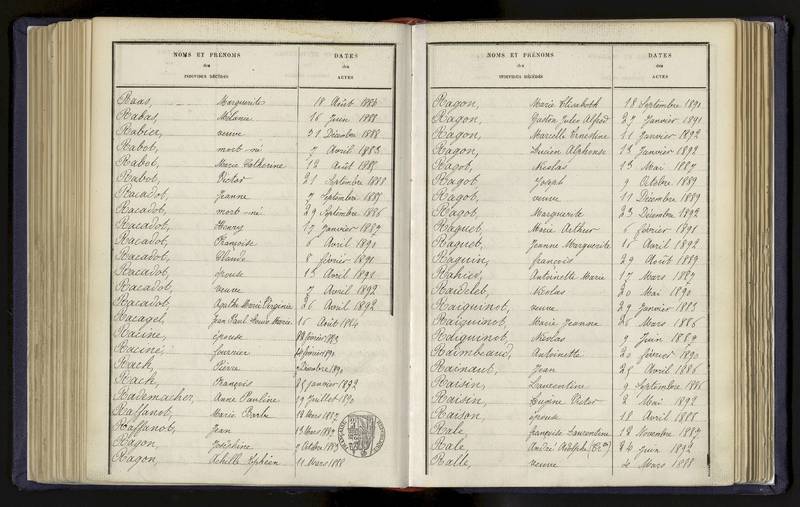 NOMS ET PRÉNOMS
des
INDIVIDUS DÉCÉDÉS
DATES
des
ACTES
Raas, Marguerite 18 Août 1886
Rabas, Mélanie 16 Juin 1888
Rabier, veuve 31 Décembre 1888
Rabot, mort-né 7 Avril 1883
Rabot, Marie Catherine 12 Août 1887
Rabot, Victor 21 Septembre 1888
Racadot, Jeanne 7 Septembre 1885
Racadot, mort-né 29 Septembre 1886
Racadot, Henry 17 Janvier 1887
Racadot, Françoise 6 Avril 1890
Racadot, Claude 8 février 1891
Racadot, épouse 13 Avril 1891
Racadot, veuve 7 Avril 1892
Racadot, Agathe Marie Virginie 26 Avril 1892
Racagel, Jean Paul Marie 15 Août 1884
Racine, épouse février 1883
Racine, fourrier février 1890
Rack, Pierre Décembre 1890
Rack, François 25 Janvier 1892
Rademacher, Anne Pauline 19 Juillet 1890
Raffanot, Marie Barbe 18 Mars 1887
Raffanot, Jean 13 Mars 1889
Ragon, Joséphine 9 Octobre 1883
Ragon, Achille 11 Mars 1888
NOMS ET PRÉNOMS
des
INDIVIDUS DÉCÉDÉS
DATES
des
ACTES
Ragon, Marie Elisabeth 18 Septembre 1890
Ragon, Gaston Jules Alfred 27 Janvier 1891
Ragon, Marcelle Ernestine 11 Janvier 1892
Ragon, Lucien Alphonse 13 Janvier 1892
Ragot, Nicolas 13 Mai 1887
Ragot, Joseph 9 Octobre 1889
Ragot, veuve 11 Décembre 1889
Ragot, Marguerite 23 Décembre 1892
Raguet, Marie Arthur 6 février 1891
Raguet, Jeanne Marguerite 15 Avril 1892
Raguin, françois 29 Août 1889
Rahier, Antoinette Marie 17 Mars 1887
Raidelet, Nicolas 20 Mai 1890
Raiguinot, veuve 29 Janvier 1883
Raiguinot, Marie Jeanne 26 Mars 1886
Raiguinot, Nicolas 9 Juin 1889
Raimbeaud, Antoinette 20 février 1890
Rainaut, Jean 25 Avril 1886
Raisin, Laurentine 9 Septembre 1886
Raisin, Eugène Victor 2 Mai 1892
Raison, épouse 18 Avril 1888
Rale, françoise Laurentine 12 Novembre 1887
Rale, André Adolphe 24 Juin 1892
Ralle, veuve 4 Mars 1888